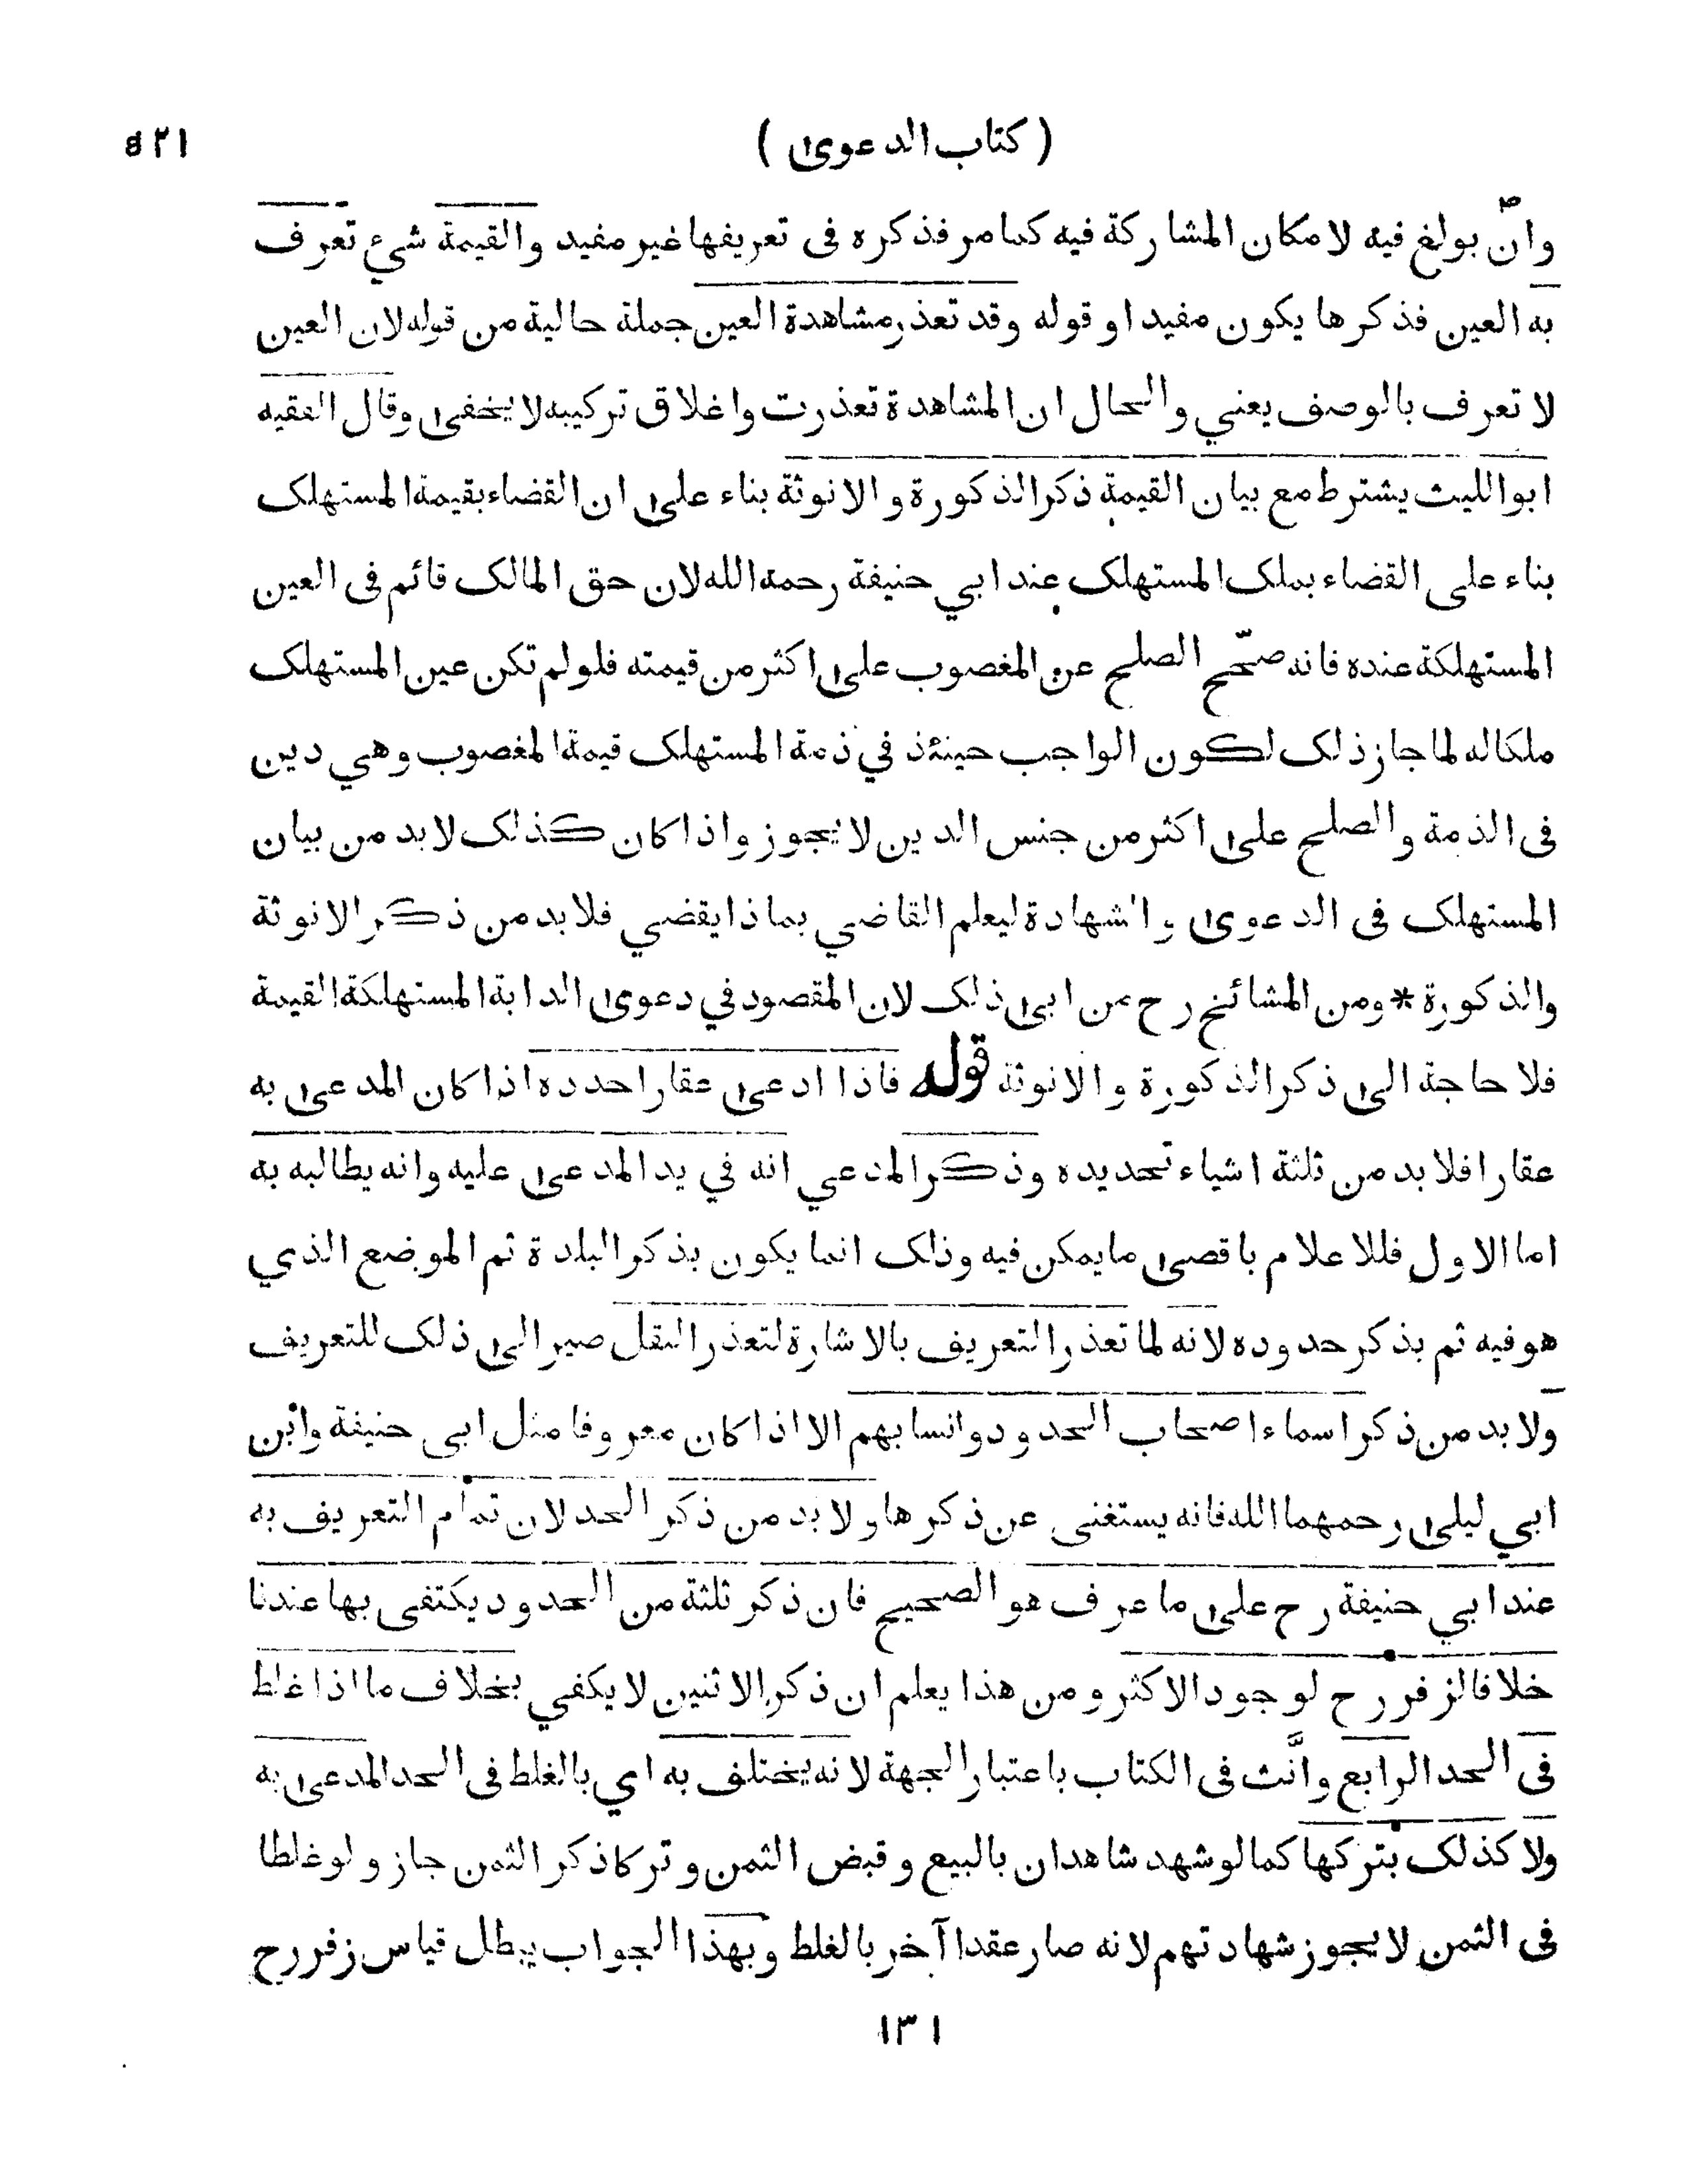 ( كتاب الدعوى ) ٥٢١
وان بولغ فيه لامكان المشاركة فيه كما مر فذكره فى تعريفها غير مفيد والقيمة شيء تعرف
به العين فذكرها يكون مفيدا و قوله وقد تعذر مشاهدة العين جملة حالية من قوله لان العين
لا تعرف بالوصف يعني والحال ان المشاهدة تعذرت واغلاق تركيبه لا يخفى وقال الفقيه
ابوالليث يشترط مع بيان القيمة ذكر الذكورة و الانوثة بناء على ان القضاء بقيمة المستهلك
بناء على القضاء بملك المستهلك عند ابي حنيفة رحمه الله لان حق المالك قائم فى العين
المستهلكة عنده فانه صحّح الصلح عن المغصوب على اكثر من قيمته فلو لم تكن عين المستهلك
ملكا له لما جاز ذلك لكون الواجب حينئذ في ذمة المستهلك قيمة المغصوب وهي دين
فى الذمة والصلح على اكثر من جنس الدين لا يجوز واذا كان كذلك لا بد من بيان
المستهلك فى الدعوى و الشهادة ليعلم القاضي بماذا يقضي فلا بد من ذكر الانوثة
والذكورة * ومن المشائخ رح من ابى ذلك لان المقصود في دعوى الدابة المستهلكة القيمة
فلا حاجة الى ذكر الذكورة و الانوثة قوله فاذا ادعى عقارا حدده اذا كان المدعى به
عقارا فلا بد من ثلثة اشياء تحديده وذكر المدعي انه في يد المدعى عليه وانه يطالبه به
اما الاول فللاعلام باقصى ما يمكن فيه وذلك انما يكون بذكر البلدة ثم الموضع الذي
هو فيه ثم بذكر حدوده لانه لما تعذر التعريف بالاشارة لتعذر النقل صير الى ذلك للتعريف
ولا بد من ذكر اسماء اصحاب الحدود وانسابهم الا اذا كان معروفا مثل ابى حنيفة وابن
ابي ليلى رحمهما الله فانه يستغنى عن ذكرها ولا بد من ذكر الحد لان تمام التعريف به
عند ابي حنيفة رح على ما عرف هو الصحيح فان ذكر ثلثة من الحدود يكتفى بها عندنا
خلافا لزفر رح لوجود الاكثر و من هذا يعلم ان ذكر الاثنين لا يكفي بخلاف ما اذا غلط
فى الحد الرابع وانّث فى الكتاب باعتبار الجهة لانه يختلف به اي بالغلط فى الحد المدعى به
ولا كذلك بتركها كما لو شهد شاهدان بالبيع و قبض الثمن و تركا ذكر الثمن جاز و لو غلطا
فى الثمن لا يجوز شهادتهم لانه صار عقدا آخر بالغلط وبهذا الجواب يبطل قياس زفر رح
١٣١